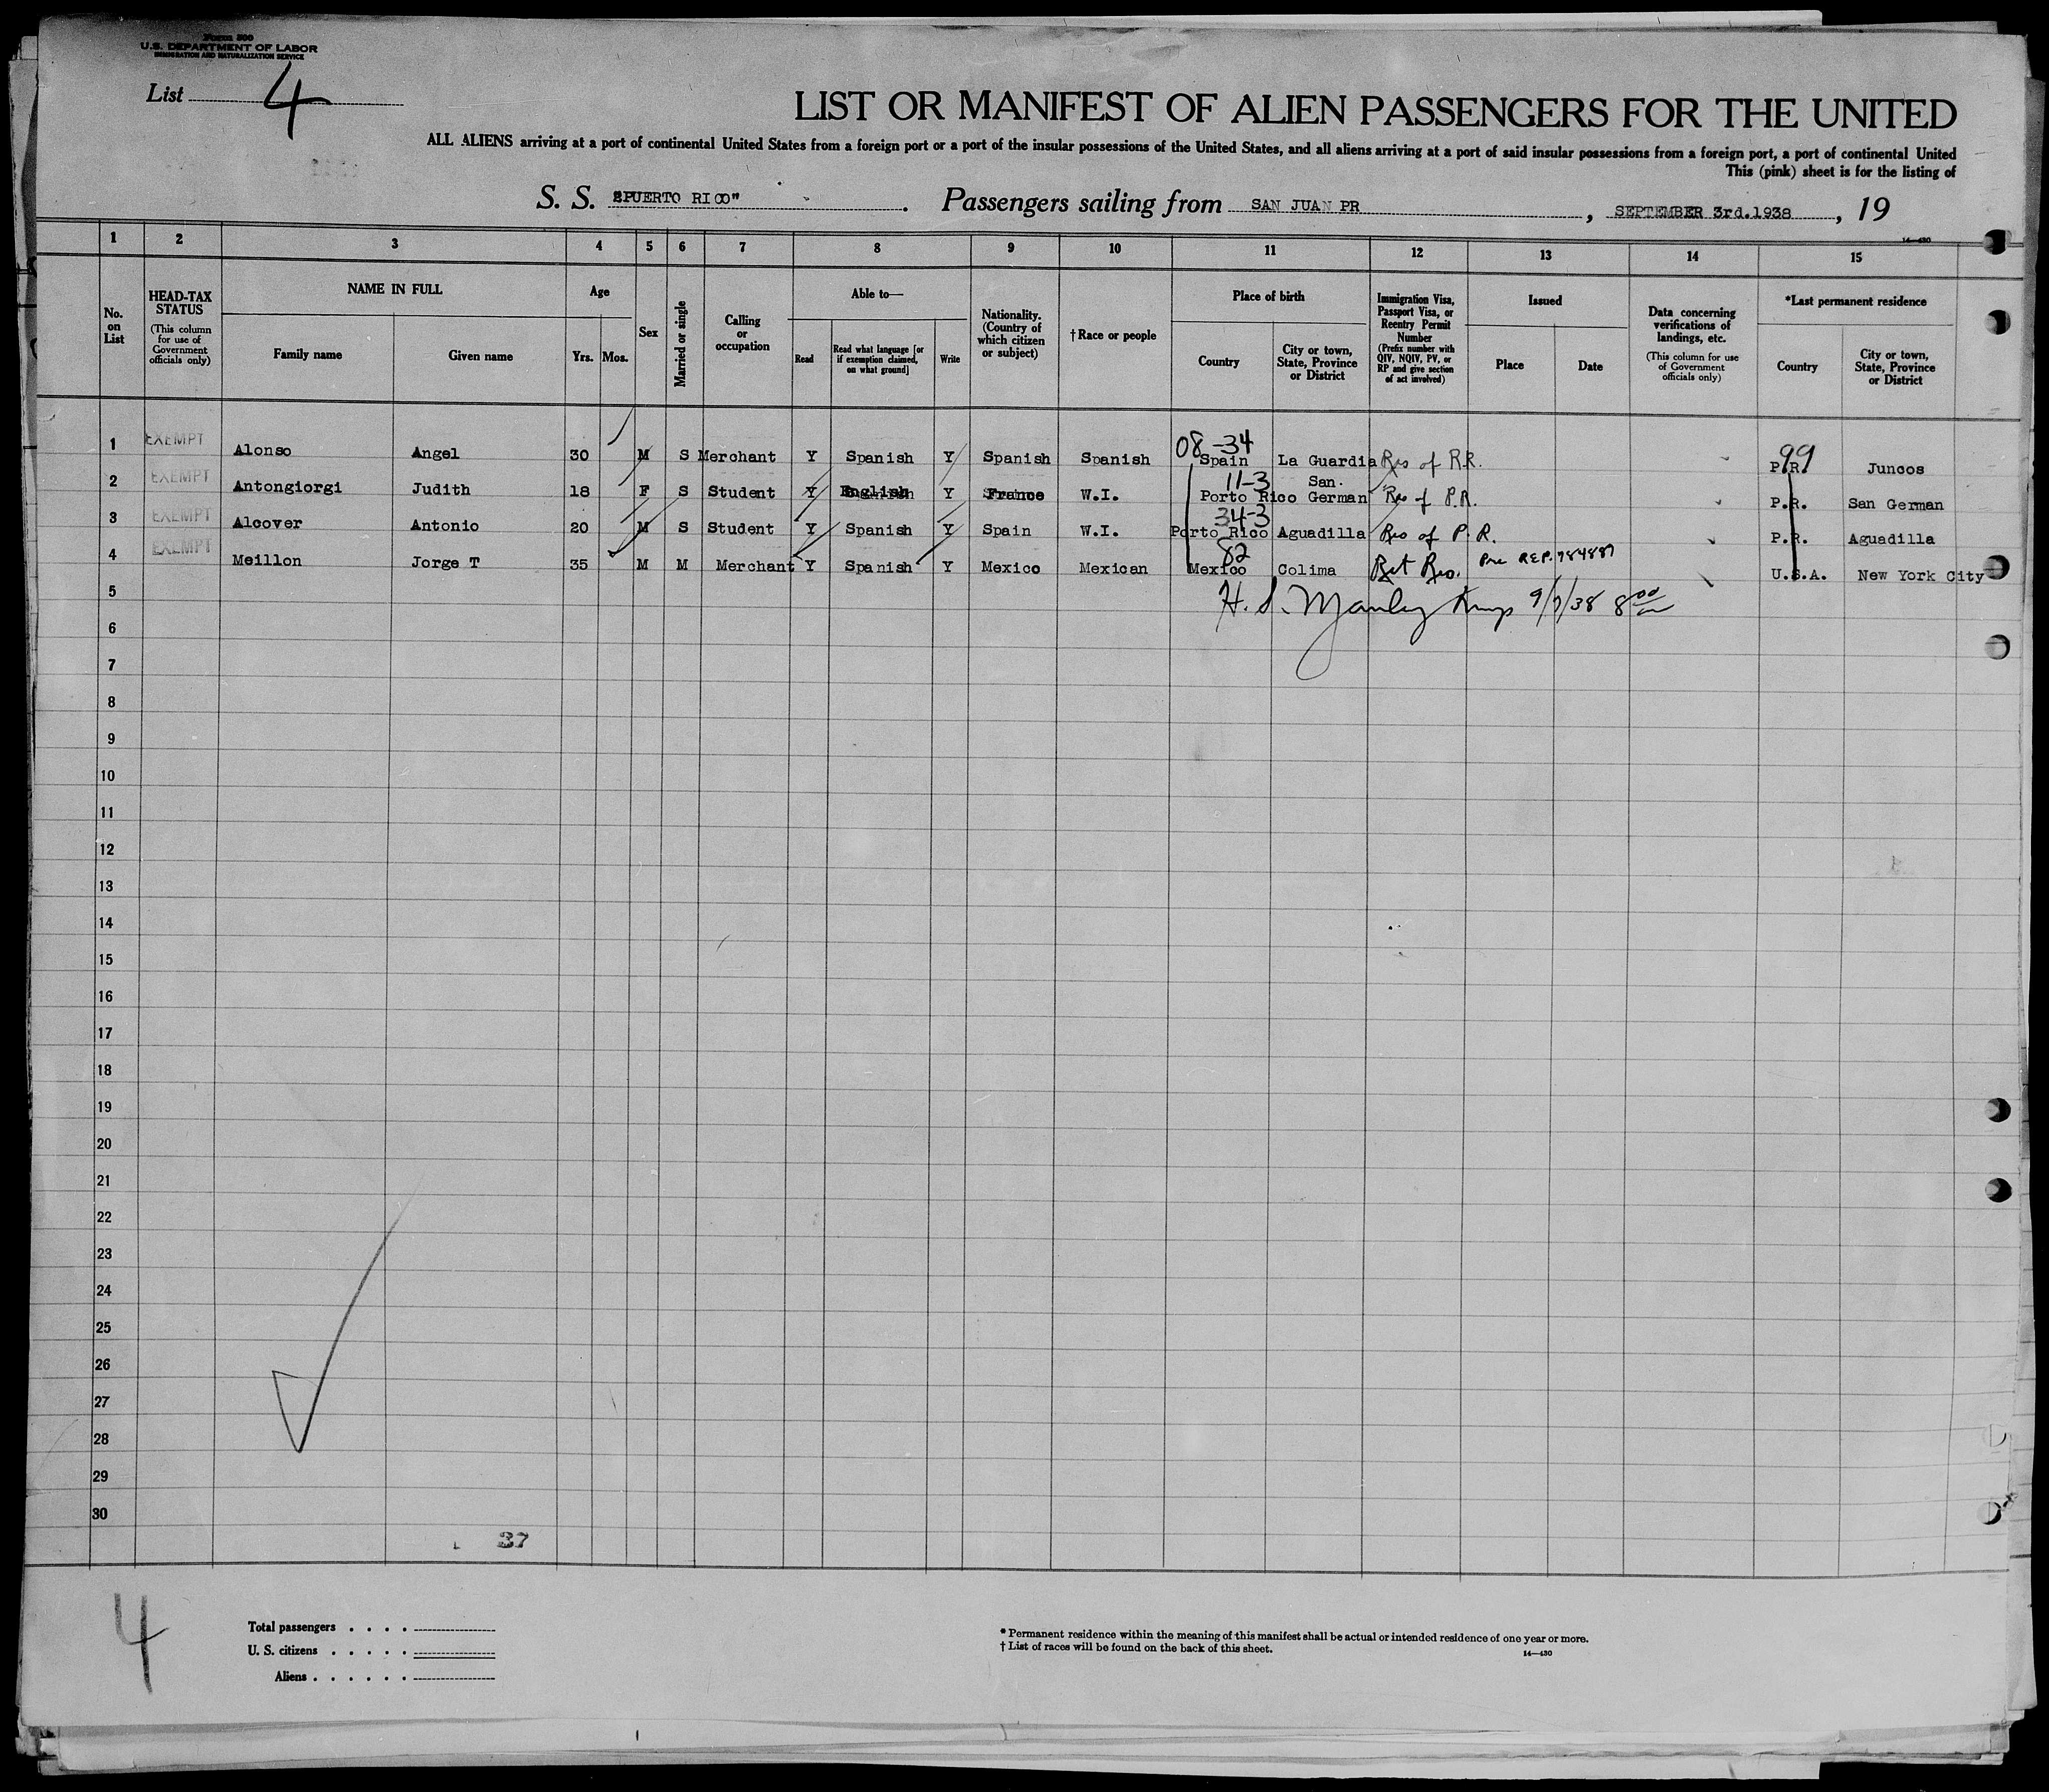 Form 500
U.S. DEPARTMENT OF LABOR
IMMIGRATION AND NATURALIZATION SERVICE
List 4
LIST OR MANIFEST OF ALIEN PASSENGERS FOR THE UNITED
ALL ALIENS arriving at a port of continental United States from a foreign port or a port of the insular possessions of the United States, and all aliens arriving at a port of said insular possessions from a foreign port, a port of continental United
This (pink) sheet is for the listing of
S. S. "PUERTO RICO" . Passengers sailing from SAN JUAN PR , SEPTEMBER 3rd.1938 , 19
14—430
1 2 3 4 5 6 7 8 9 10 11 12 13 14 15
No. on List
HEAD-TAX STATUS
(This column for use of Government officials only)
NAME IN FULL
Family name
Given name
Age
Yrs. Mos.
Sex
Married or single
Calling or occupation
Able to—
Read
Read what language [or if exemption claimed, on what ground]
Write
Nationality. (Country of which citizen or subject)
† Race or people
Place of birth
Country
City or town, State, Province or District
Immigration Visa, Passport Visa, or Reentry Permit Number
(Prefix number with QIV, NQIV, PV, or RP and give section of act involved)
Issued
Place
Date
Data concerning verifications of landings, etc.
(This column for use of Government officials only)
*Last permanent residence
Country
City or town, State, Province or District
08-34 99
1 EXEMPT Alonso Angel 30 M S Merchant Y Spanish Y Spanish Spanish Spain La Guardia Res of P.R. P.R. Juncos
11-3 San.
2 EXEMPT Antongiorgi Judith 18 F S Student Y English Y France W.I. Porto Rico German Res of P.R. P.R. San German
34-3
3 EXEMPT Alcover Antonio 20 M S Student Y Spanish Y Spain W.I. Porto Rico Aguadilla Res of P.R. P.R. Aguadilla
82
4 EXEMPT Meillon Jorge T 35 M M Merchant Y Spanish Y Mexico Mexican Mexico Colima Ret Res. U.S.A. New York City
5 H. S. Manley 9/7/38 8 00
6
7
8
9
10
11
12
13
14
15
16
17
18
19
20
21
22
23
24
25
26
27
28
29
30
37
4
Total passengers . . . .
U. S. citizens . . . . .
Aliens . . . . . .
* Permanent residence within the meaning of this manifest shall be actual or intended residence of one year or more.
† List of races will be found on the back of this sheet.
14—430